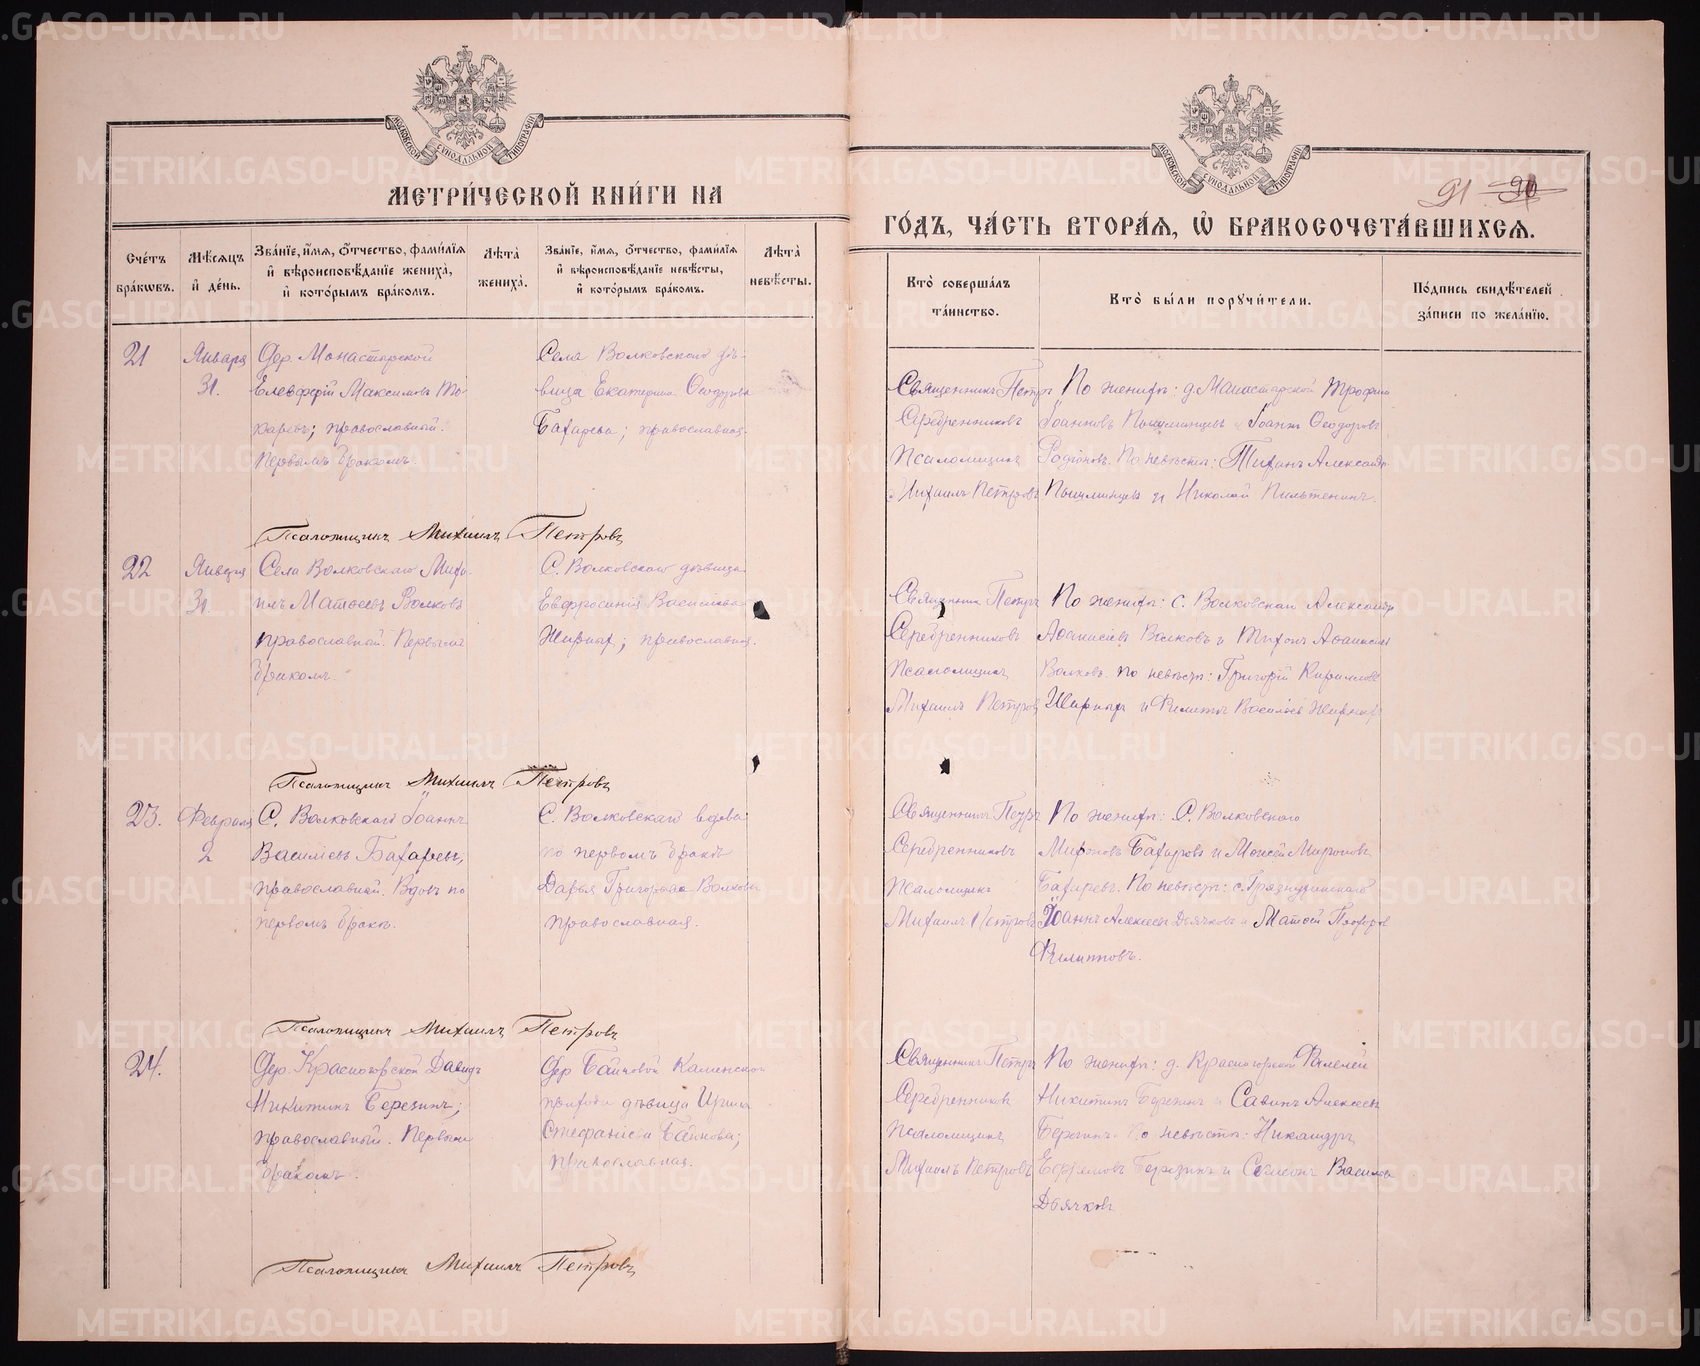 МЕТРИ́ЧЕСКОЙ КНИ́ГИ НА
ГО́ДЪ, ЧА́СТЬ ВТОРА́Я, Ѡ БРАКОСОЧЕТА́ВШИХСЯ.
91
Сче́тъ бра́кѡвъ.
Мѣ́сяцъ и де́нь.
Зва́нїе, и́мя, о́тчество, фами́лїя и вѣроисповѣ́данїе жениха́, и кото́рымъ бра́комъ.
Лѣта̀ жениха̀.
Зва́нїе, и́мя, о́тчество, фами́лїя и вѣроисповѣ́данїе невѣ́сты, и кото́рымъ бра́комъ.
Лѣта̀ невѣ́сты.
Кто̀ соверша́лъ та́инство.
Кто̀ бы́ли порꙋчи́тели.
По́дпись свидѣ́телей за́писи по жела́нїю.
21
Января
31.
Дер. Монастырской
Елевферій Максимовъ То-
каревъ; православный.
Первымъ бракомъ.
Села Волковскаго дѣ-
вица Екатерина Ѳеодорова
Бахарева; православная.
Священникъ Петръ
Серебренниковъ
Псаломщикъ
Михаилъ Петровъ
По женихѣ: д. Монастырской Трофим
Іоанновъ Пышминцевъ и Іоаннъ Ѳеодоровъ
Родіоновъ. По невѣстѣ: Тихонъ Александр.
Пышминцевъ и Николай
Псаломщикъ Михаилъ Петровъ
22
Января
31.
Села Волковскаго Миха-
илъ Матѳеевъ Волковъ
православный. Первымъ
бракомъ.
С. Волковскаго дѣвица
Евфросинія Васильева
Жирных; православная.
Священник Петръ
Серебренниковъ
Псаломщикъ
Михаилъ Петровъ
По женихѣ: с. Волковскаго Александр
Аѳанасіевъ Волковъ и Тихонъ Аѳанасіевъ
Волковъ. По невѣстѣ: Григорій Кирилловъ
Жирныхъ и Филиппъ Васильевъ Жирных
Псаломщикъ Михаилъ Петровъ
23.
Февраля
2
С. Волковскаго Іоаннъ
Василіевъ Бахаревъ,
православный. Вдовъ по
первомъ бракѣ.
С. Волковскаго вдова
по первомъ бракѣ
Дарья Григорьева Волкова
православная.
Священникъ Петръ
Серебренниковъ
Псаломщикъ
Михаилъ Петровъ
По женихѣ: С. Волковского
Мироновъ Бахаревъ и Моисей Мироновъ
Бахаревъ. По невѣстѣ: с. Грязнушинскаго
Іоаннъ Алексеевъ Дьячковъ и Матѳей
Филипповъ.
Псаломщикъ Михаилъ Петровъ
24.
Дер. Красногорской Давидъ
Никитинъ Березинъ;
православный. Первымъ
бракомъ.
Дер Байновой Каменскаго
прихода дѣвица Ирина
Стефаніева Байнова;
православная.
Священникъ Петръ
Серебренниковъ
Псаломщикъ
Михаилъ Петровъ
По женихѣ: д. Красногорской Фалелей
Никитинъ Березинъ и Савинъ Алексеевъ
Березинъ. По невѣстѣ: Никандръ
Ефремовъ Березинъ и Симеонъ Васильевъ
Дьячковъ
Псаломщикъ Михаилъ Петровъ